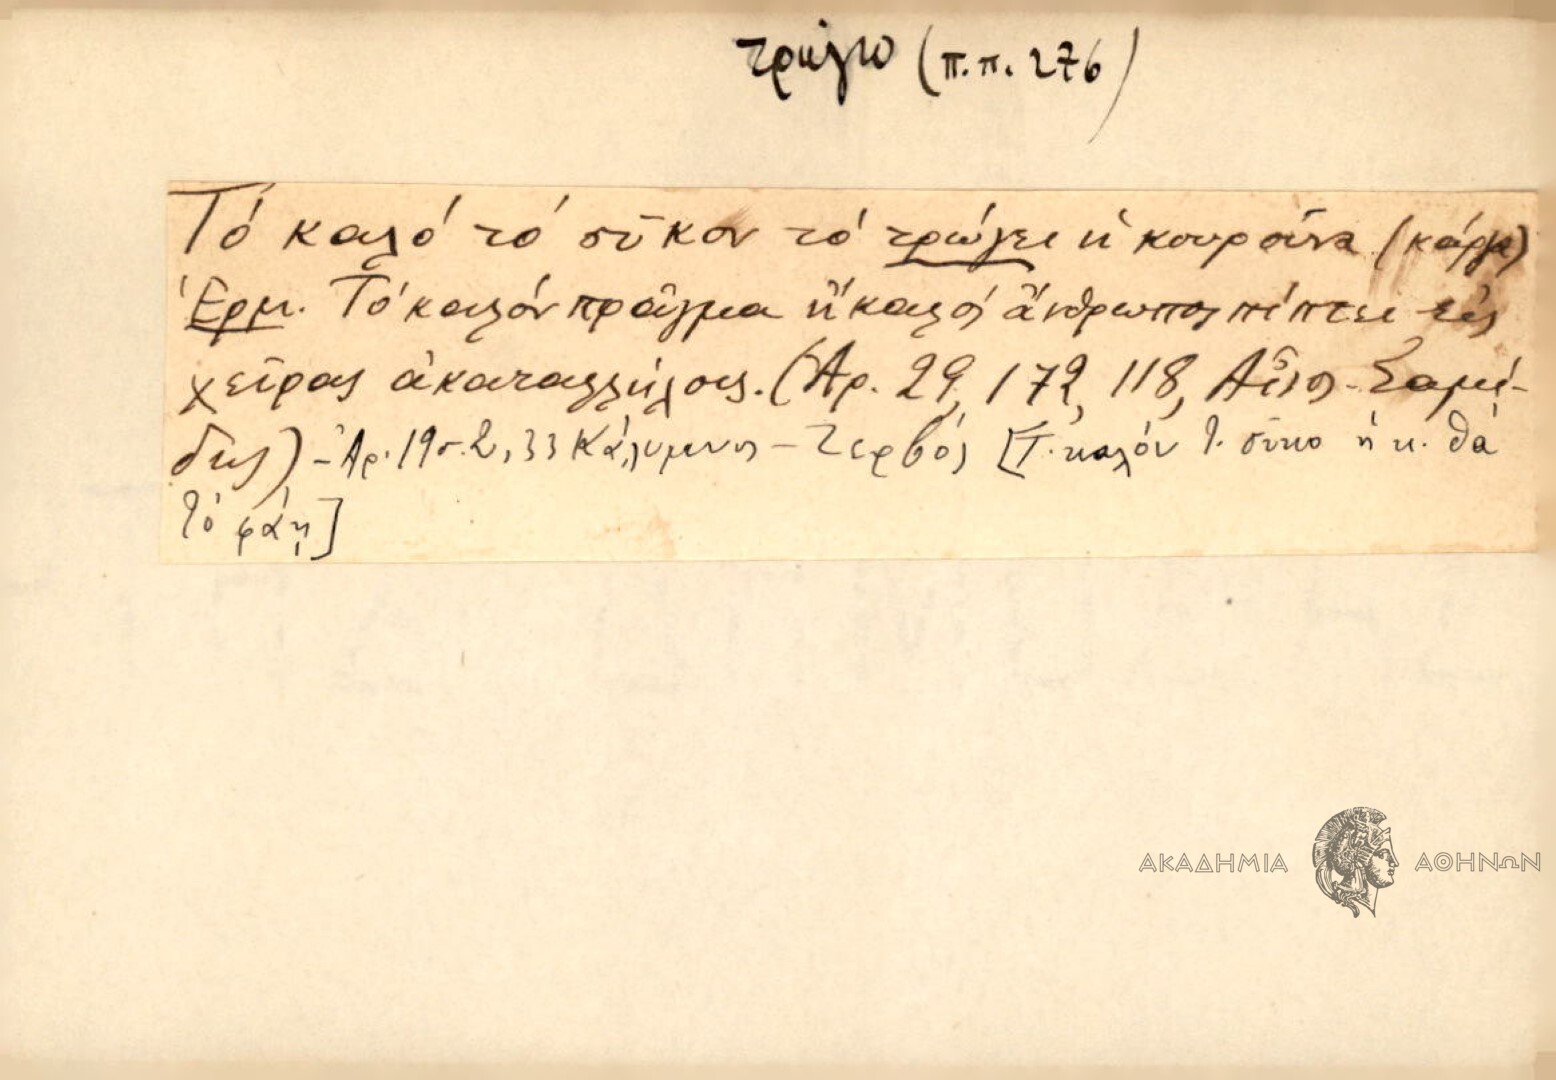 τρώγω (π.π. 276)
Τό καλό τό σῦκον τό τρώγει ἡ κουρούνα (κάργα)
Ἑρμ. Τό καλόν πρᾶγμα ἤ καλός ἄνθρωπος πίπτει εἰς
χεῖρας ἀκαταλλήλους. (Ἀρ. 29, 172, 118, Αἶνος - Σαμί-
δης) - Ἀρ. 19 σ. 2, 33 Κάλυμνος - Ζερβός [Τ. καλόν τ. σῦκο ἡ κ. θά
τό φάῃ]
ΑΚΑΔΗΜΙΑ ΑΘΗΝΩΝ